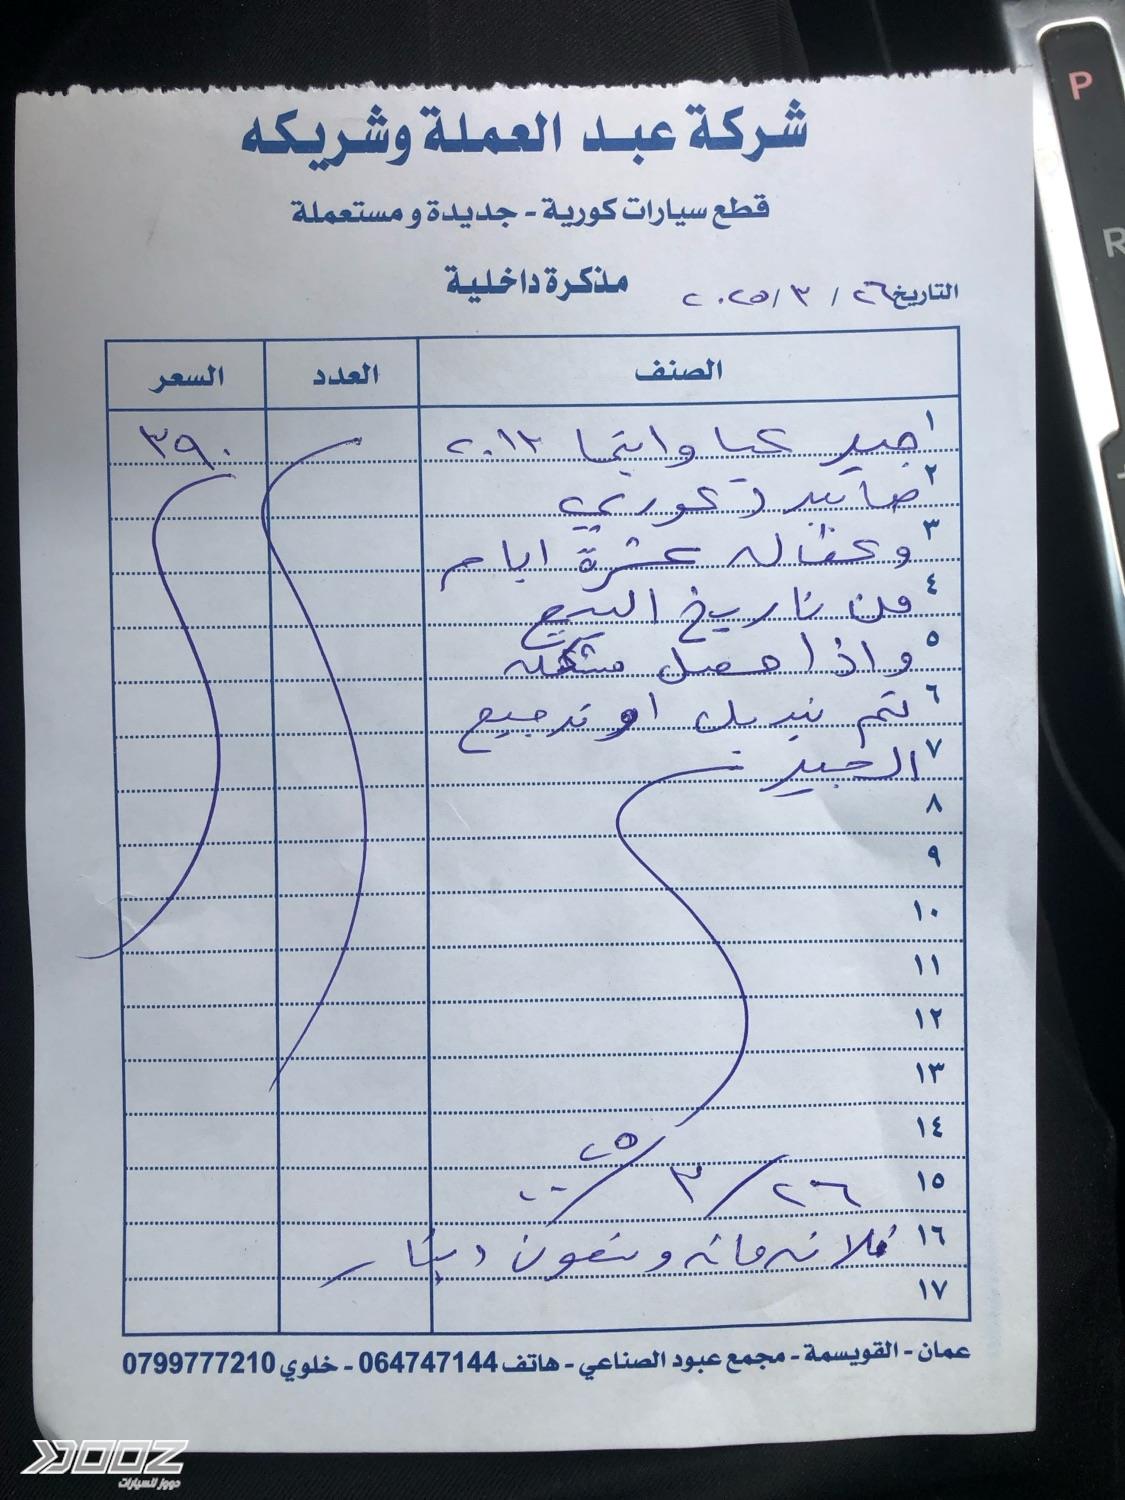 شركة عبد العملة وشريكه
قطع سيارات كورية - جديدة ومستعملة
مذكرة داخلية
التاريخ ٢٦ / ٣ / ٢٠٢٥
الصنف العدد السعر
١ جير كيا وابتما ٢٠١٢ ٣٩٠
٢ كوري
٣ وكفاله عشرة ايام
٤ من تاريخ البيع
٥ واذا حصل مشكله
٦ يتم تبديل او ترجيع
٧ الجير
٨
٩
١٠
١١
١٢
١٣
١٤
١٥ ٢٦ / ٣ / ٢٠٢٥
١٦ ثلاثه مائه وتسعون دينار
١٧
عمان - القويسمة - مجمع عبود الصناعي - هاتف 064747144 - خلوي 0799777210
DOOZ
دووز للسيارات
P
R